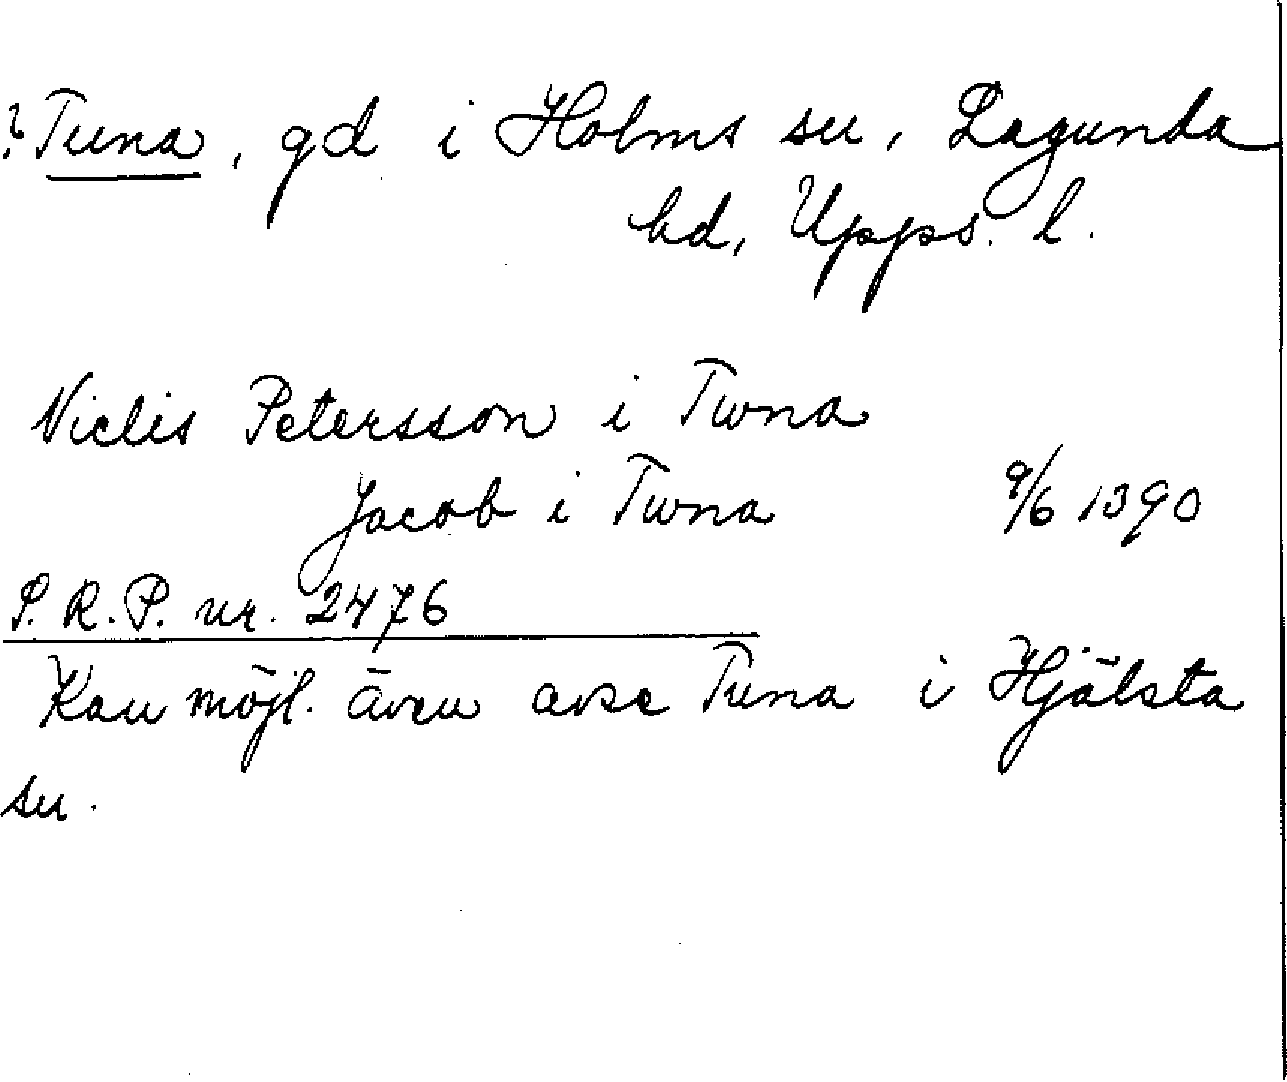 ? Tuna, gd i Holms sn, Lagunda
hd, Upps. l.
Niclis Petersson i Twna
Jacob i Twna 9/6 1390
S.R.P. nr. 2476
Kan möjl. även avse Tuna i Hjälsta
sn.